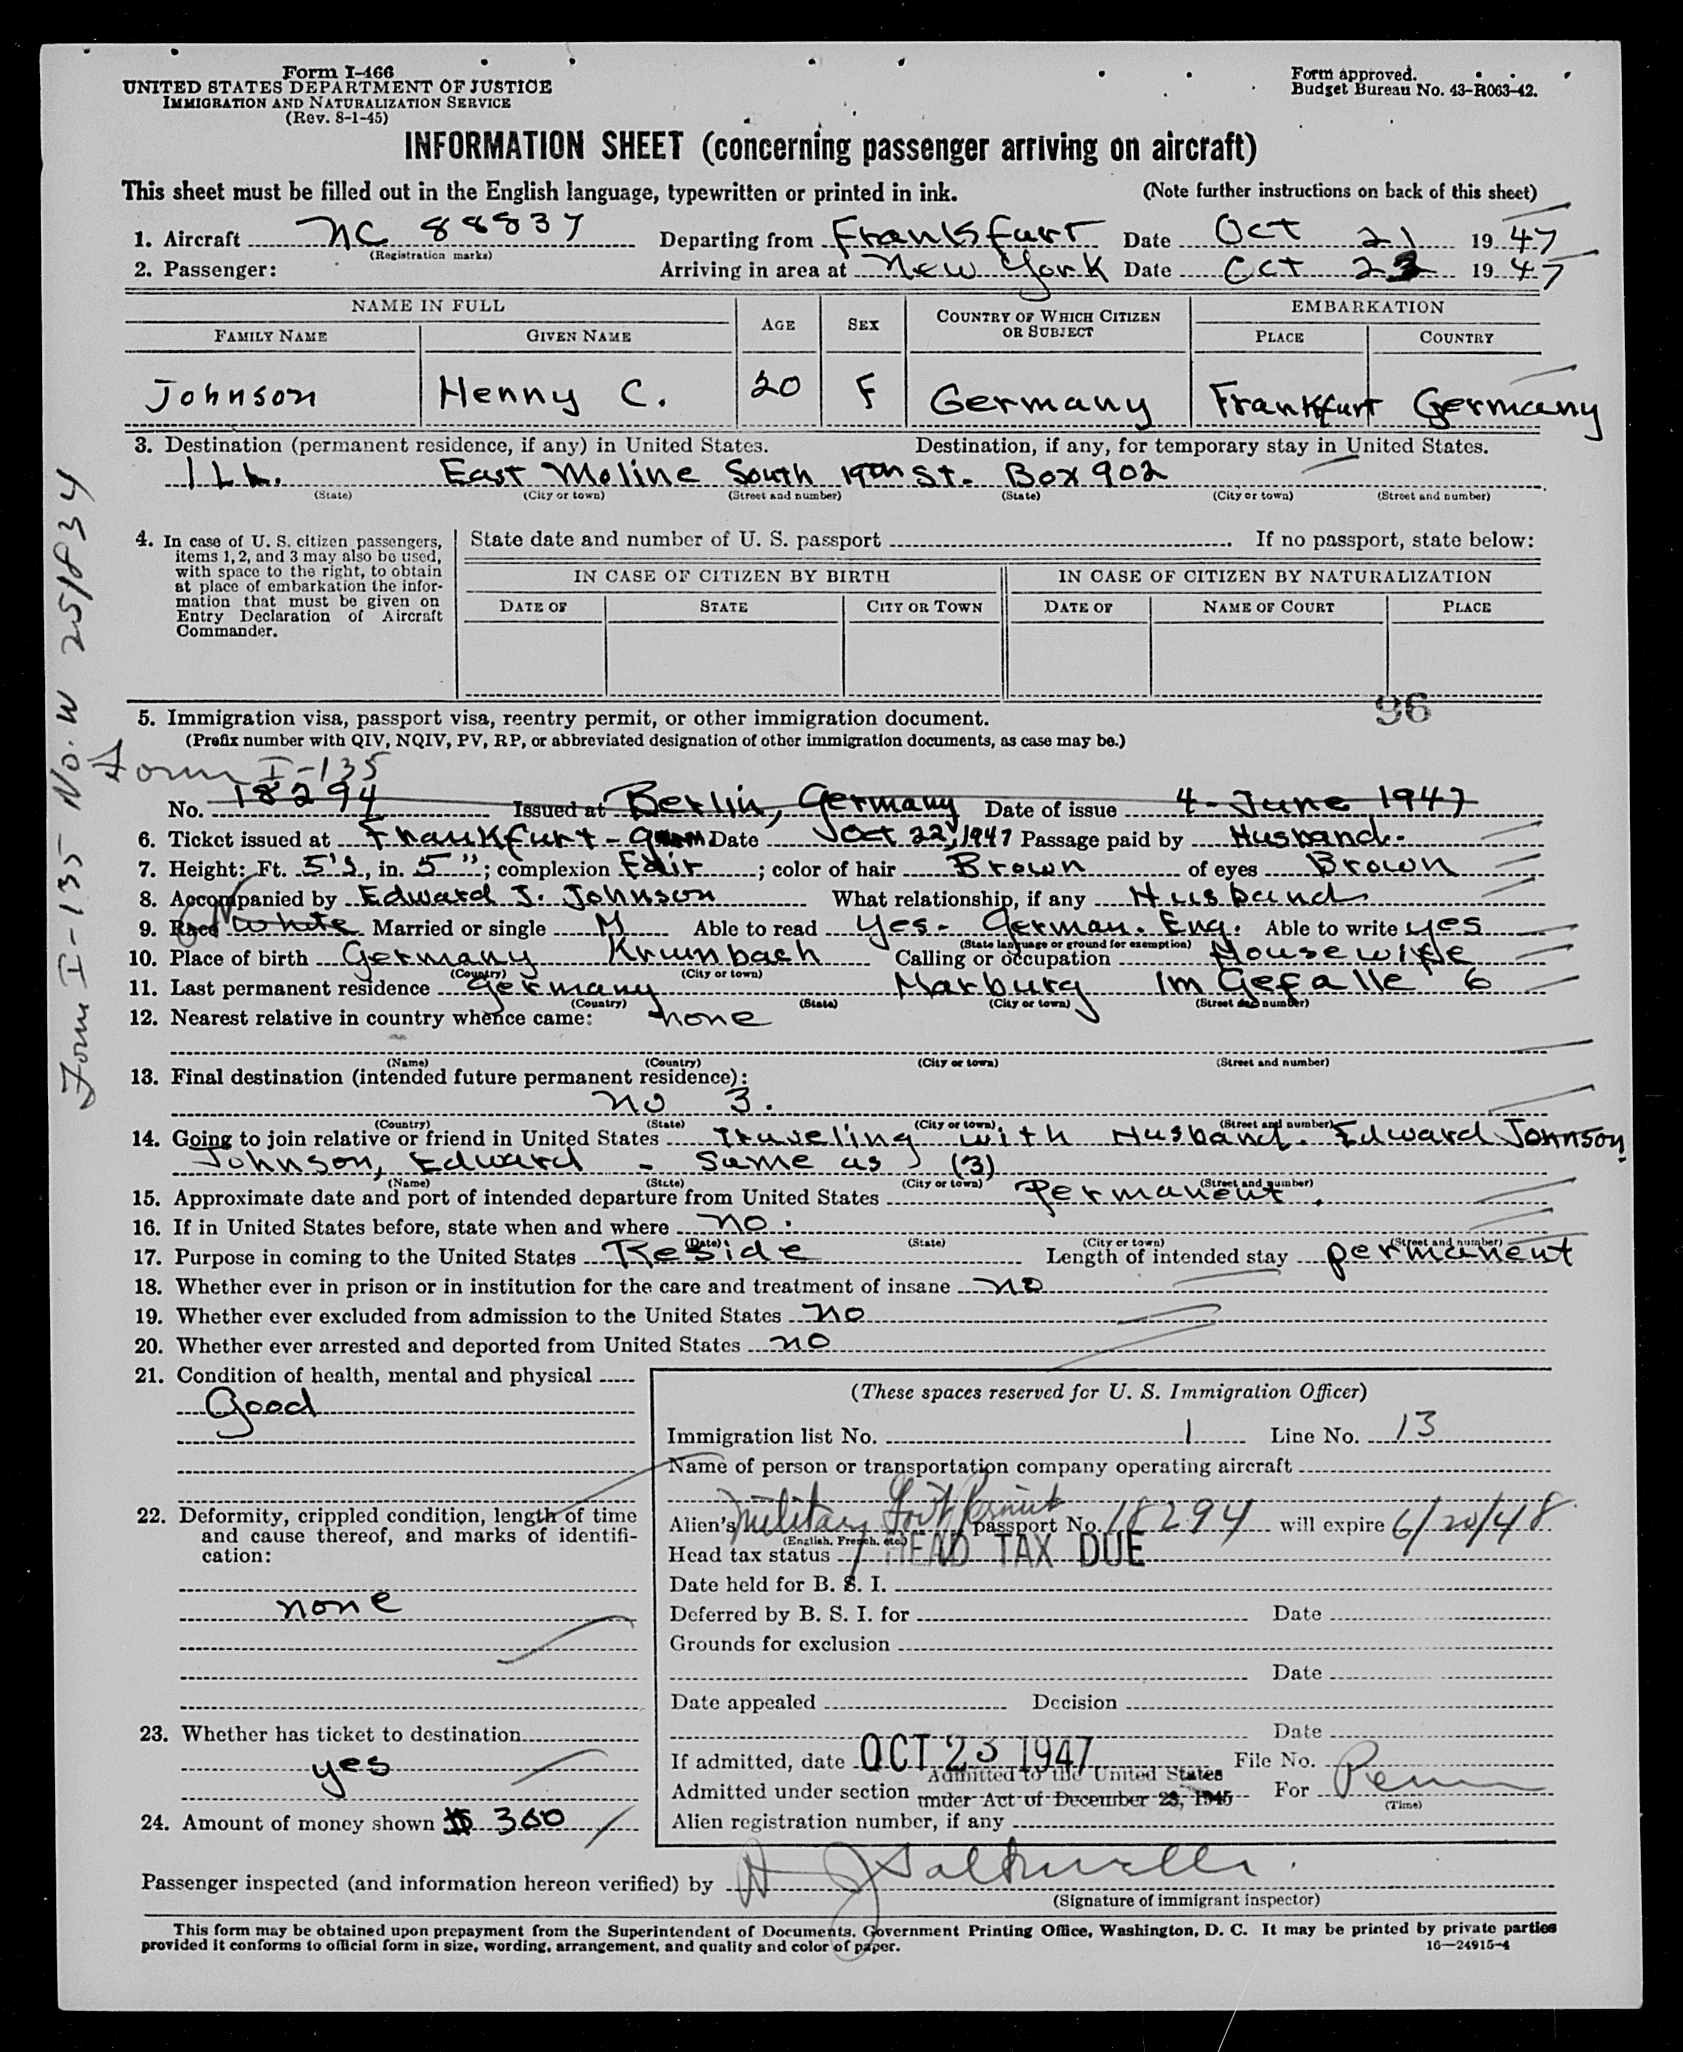 Form I-466
UNITED STATES DEPARTMENT OF JUSTICE
IMMIGRATION AND NATURALIZATION SERVICE
(Rev. 8-1-45)
Form approved.
Budget Bureau No. 43-R063-42.
INFORMATION SHEET (concerning passenger arriving on aircraft)
This sheet must be filled out in the English language, typewritten or printed in ink. (Note further instructions on back of this sheet)
1. Aircraft NC 88837 Departing from Frankfurt Date Oct 21 1947
(Registration marks)
2. Passenger: Arriving in area at New York Date Oct 23 1947
NAME IN FULL AGE SEX COUNTRY OF WHICH CITIZEN OR SUBJECT EMBARKATION
FAMILY NAME GIVEN NAME PLACE COUNTRY
Johnson Henny C. 20 F Germany Frankfurt Germany
3. Destination (permanent residence, if any) in United States. Destination, if any, for temporary stay in United States.
ILL. East Moline South 19th St. Box 902
(State) (City or town) (Street and number) (State) (City or town) (Street and number)
4. In case of U. S. citizen passengers, items 1, 2, and 3 may also be used, with space to the right, to obtain at place of embarkation the information that must be given on Entry Declaration of Aircraft Commander.
State date and number of U. S. passport If no passport, state below:
IN CASE OF CITIZEN BY BIRTH IN CASE OF CITIZEN BY NATURALIZATION
DATE OF STATE CITY OR TOWN DATE OF NAME OF COURT PLACE
96
5. Immigration visa, passport visa, reentry permit, or other immigration document.
(Prefix number with QIV, NQIV, PV, RP, or abbreviated designation of other immigration documents, as case may be.)
Form I-135
No. 18294 Issued at Berlin, Germany Date of issue 4 - June 1947
6. Ticket issued at Frankfurt - Date Oct 22, 1947 Passage paid by Husband.
7. Height: Ft. 5's, in. 5"; complexion Fair; color of hair Brown of eyes Brown
8. Accompanied by Edward J. Johnson What relationship, if any Husband
9. Race White Married or single M Able to read Yes - German. Eng. Able to write yes
(State language or ground for exemption)
10. Place of birth Germany Krumbach Calling or occupation Housewife
(Country) (City or town)
11. Last permanent residence Germany Marburg Im Gefalle 6
(Country) (State) (City or town) (Street and number)
12. Nearest relative in country whence came: none
(Name) (Country) (City or town) (Street and number)
13. Final destination (intended future permanent residence):
no 3.
(Country) (State) (City or town) (Street and number)
14. Going to join relative or friend in United States traveling with Husband. Edward Johnson
Johnson, Edward - Same as (3)
(Name) (State) (City or town) (Street and number)
15. Approximate date and port of intended departure from United States Permanent.
16. If in United States before, state when and where no.
(Date) (State) (City or town) (Street and number)
17. Purpose in coming to the United States Reside Length of intended stay permanent
18. Whether ever in prison or in institution for the care and treatment of insane no
19. Whether ever excluded from admission to the United States no
20. Whether ever arrested and deported from United States no
21. Condition of health, mental and physical
Good
22. Deformity, crippled condition, length of time and cause thereof, and marks of identification:
none
23. Whether has ticket to destination
yes
24. Amount of money shown $ 300
(These spaces reserved for U. S. Immigration Officer)
Immigration list No. 1 Line No. 13
Name of person or transportation company operating aircraft
Military Gov't Permit
Alien's passport No. 18294 will expire 6/20/48
(English, French, etc.)
Head tax status HEAD TAX DUE
Date held for B. S. I.
Deferred by B. S. I. for Date
Grounds for exclusion
Date
Date appealed Decision
Date
If admitted, date OCT 23 1947 File No.
Admitted under section Admitted to the United States under Act of December 28, 1945 For Perm
(Time)
Alien registration number, if any
Passenger inspected (and information hereon verified) by
(Signature of immigrant inspector)
This form may be obtained upon prepayment from the Superintendent of Documents, Government Printing Office, Washington, D. C. It may be printed by private parties
provided it conforms to official form in size, wording, arrangement, and quality and color of paper. 16—24915-4
Form I-135 No. W 251834